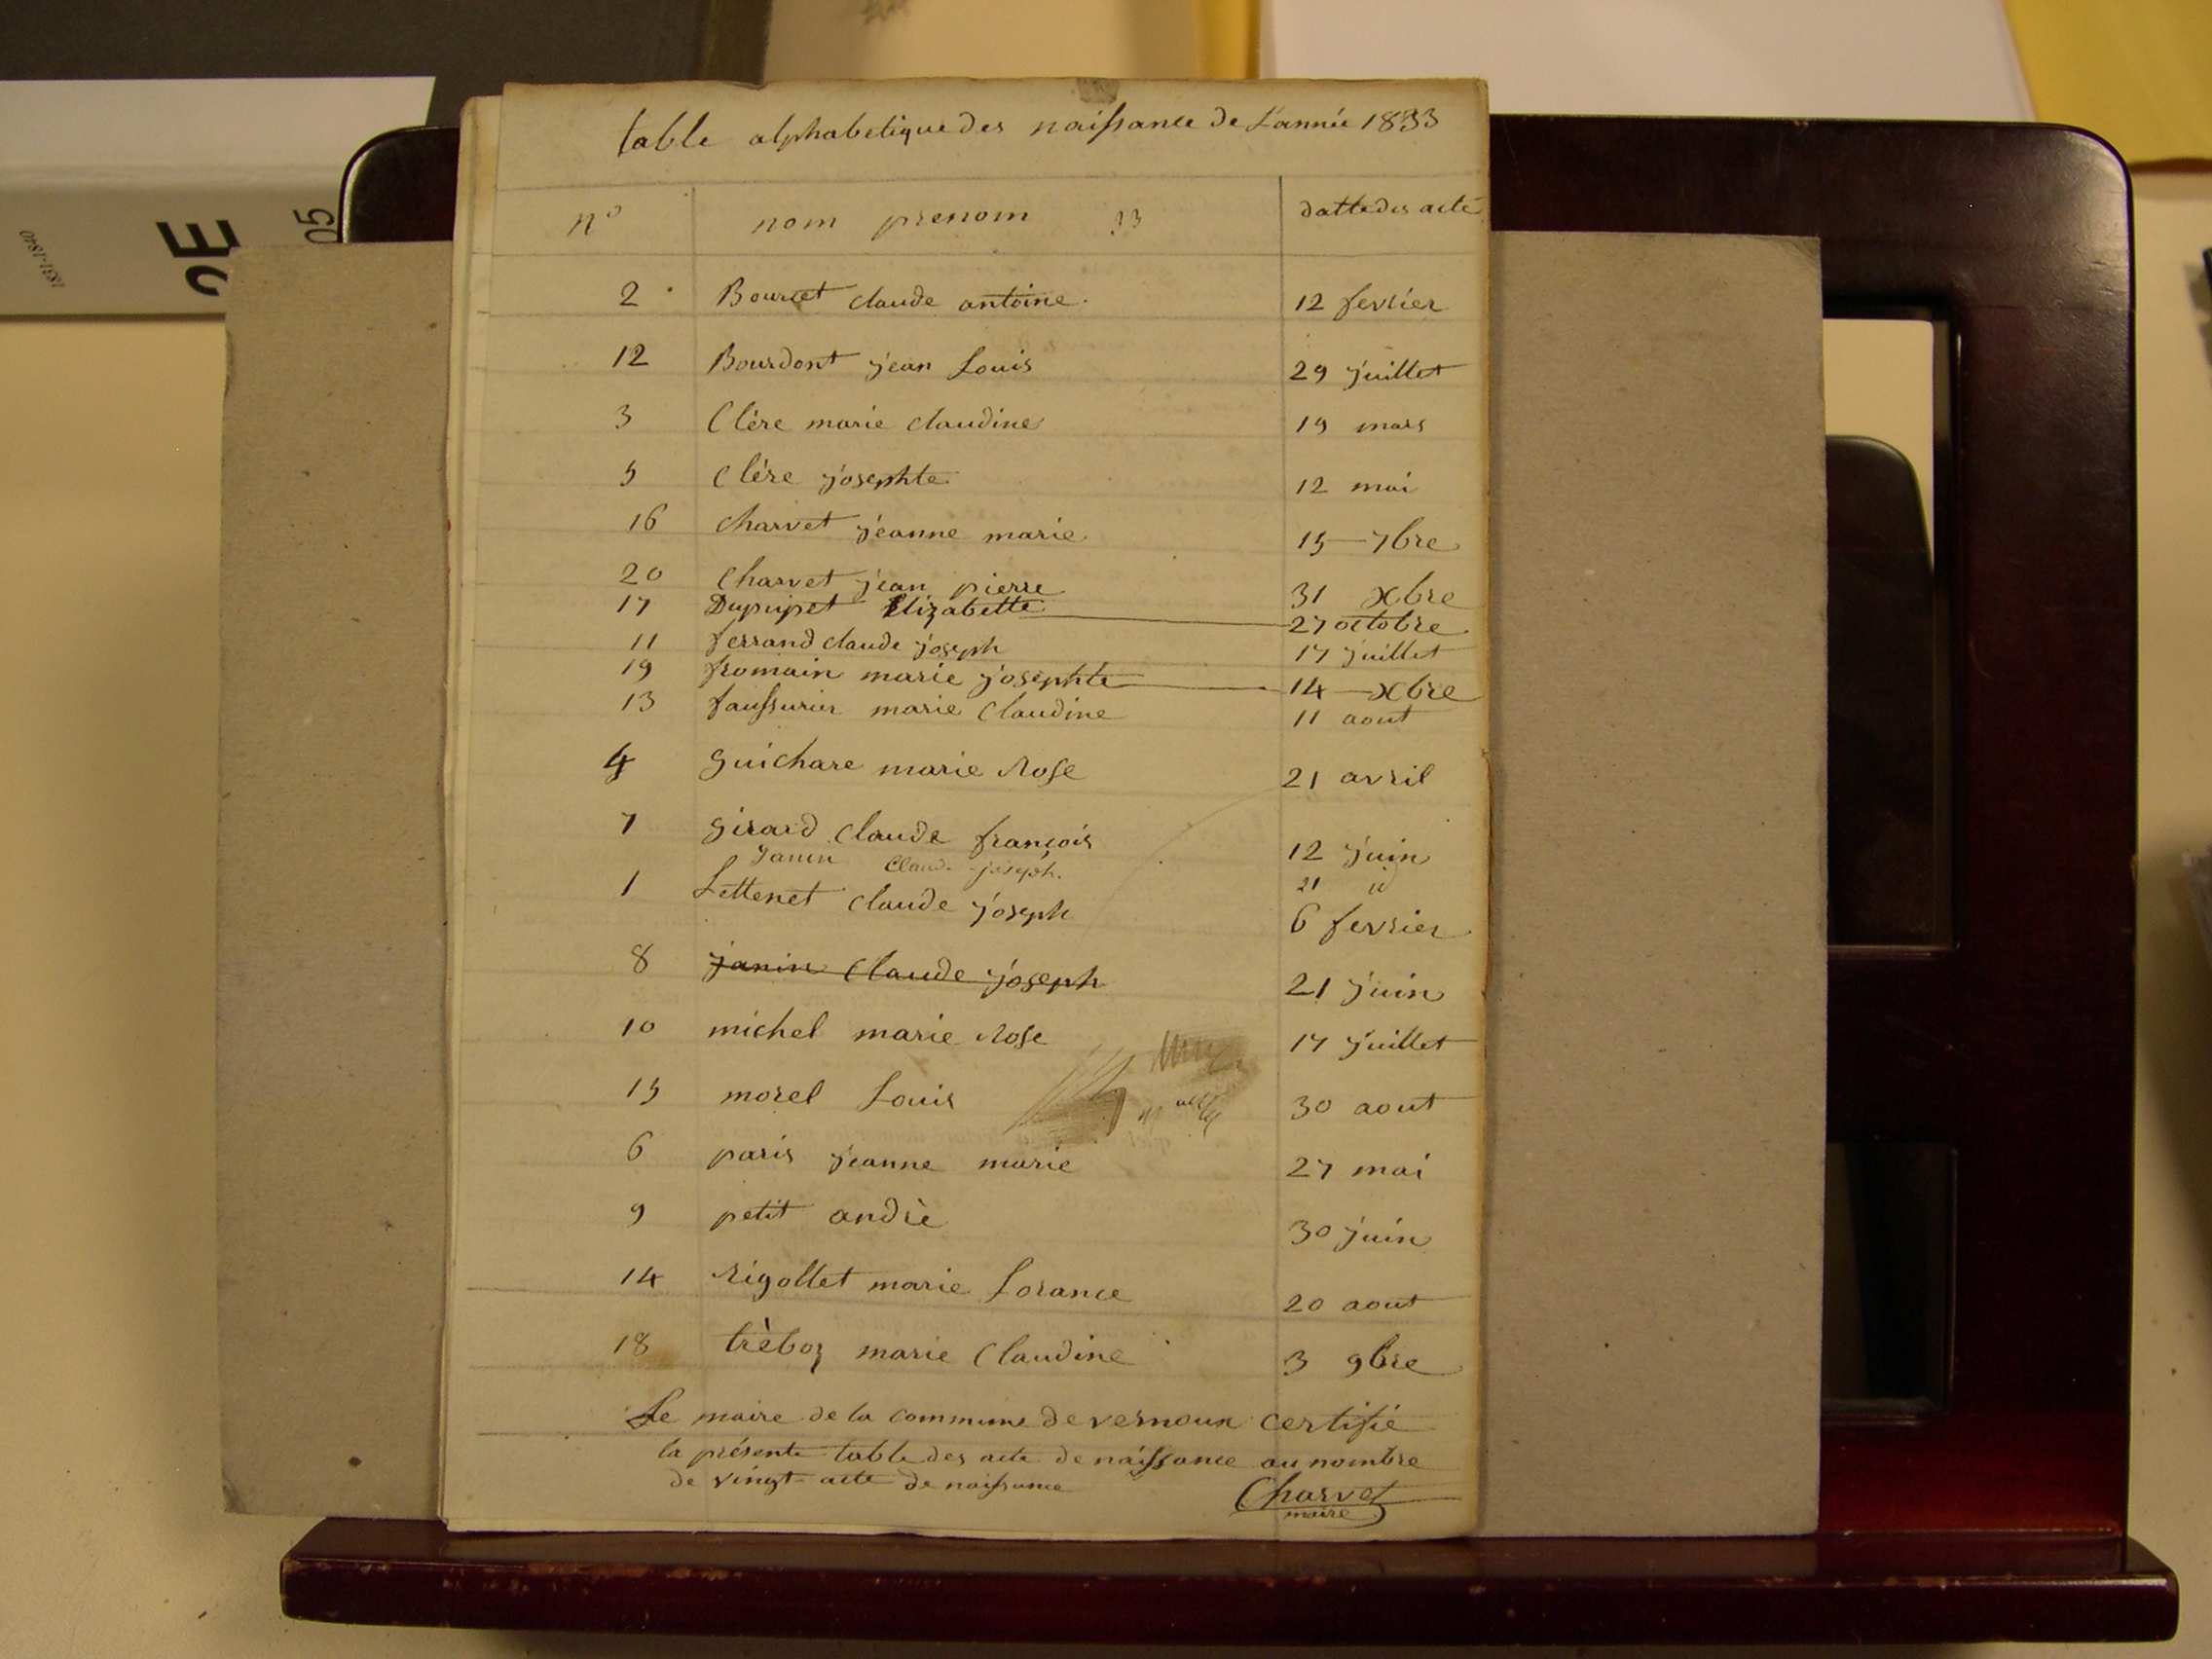 table alphabetique des naissance de L'année 1833
n° nom prenom 33 datte des acte
2 Bourcet claude antoine 12 fevrier
12 Bourdont jean Louis 29 juillet
3 Clére marie claudine 19 mars
5 Clére josephte 12 mai
16 charvet jeanne marie 15 7bre
20 charvet jean pierre 31 xbre
17 Dupupet Elizabette 27 octobre
11 ferrand claude joseph 17 juillet
19 fromain marie josephte 14 xbre
13 faussurier marie Claudine 11 aout
4 guichare marie Rose 21 avril
7 girard Claude françois 12 juin
Janin Claud. joseph. 21 id
1 Lettenet claude joseph 6 fevrier
8 janin Claude joseph 21 juin
10 michel marie Rose 17 juillet
15 morel Louis 30 aout
6 paris jeanne marie 27 mai
9 petit andrè 30 juin
14 rigollet marie Lorance 20 aout
18 trèboz marie Claudine 3 9bre
Le maire de la commune de vernoux certifié
la présente table des acte de naissance au nombre
de vingt acte de naissance
Charvet
maire
2E
05
1831-1840